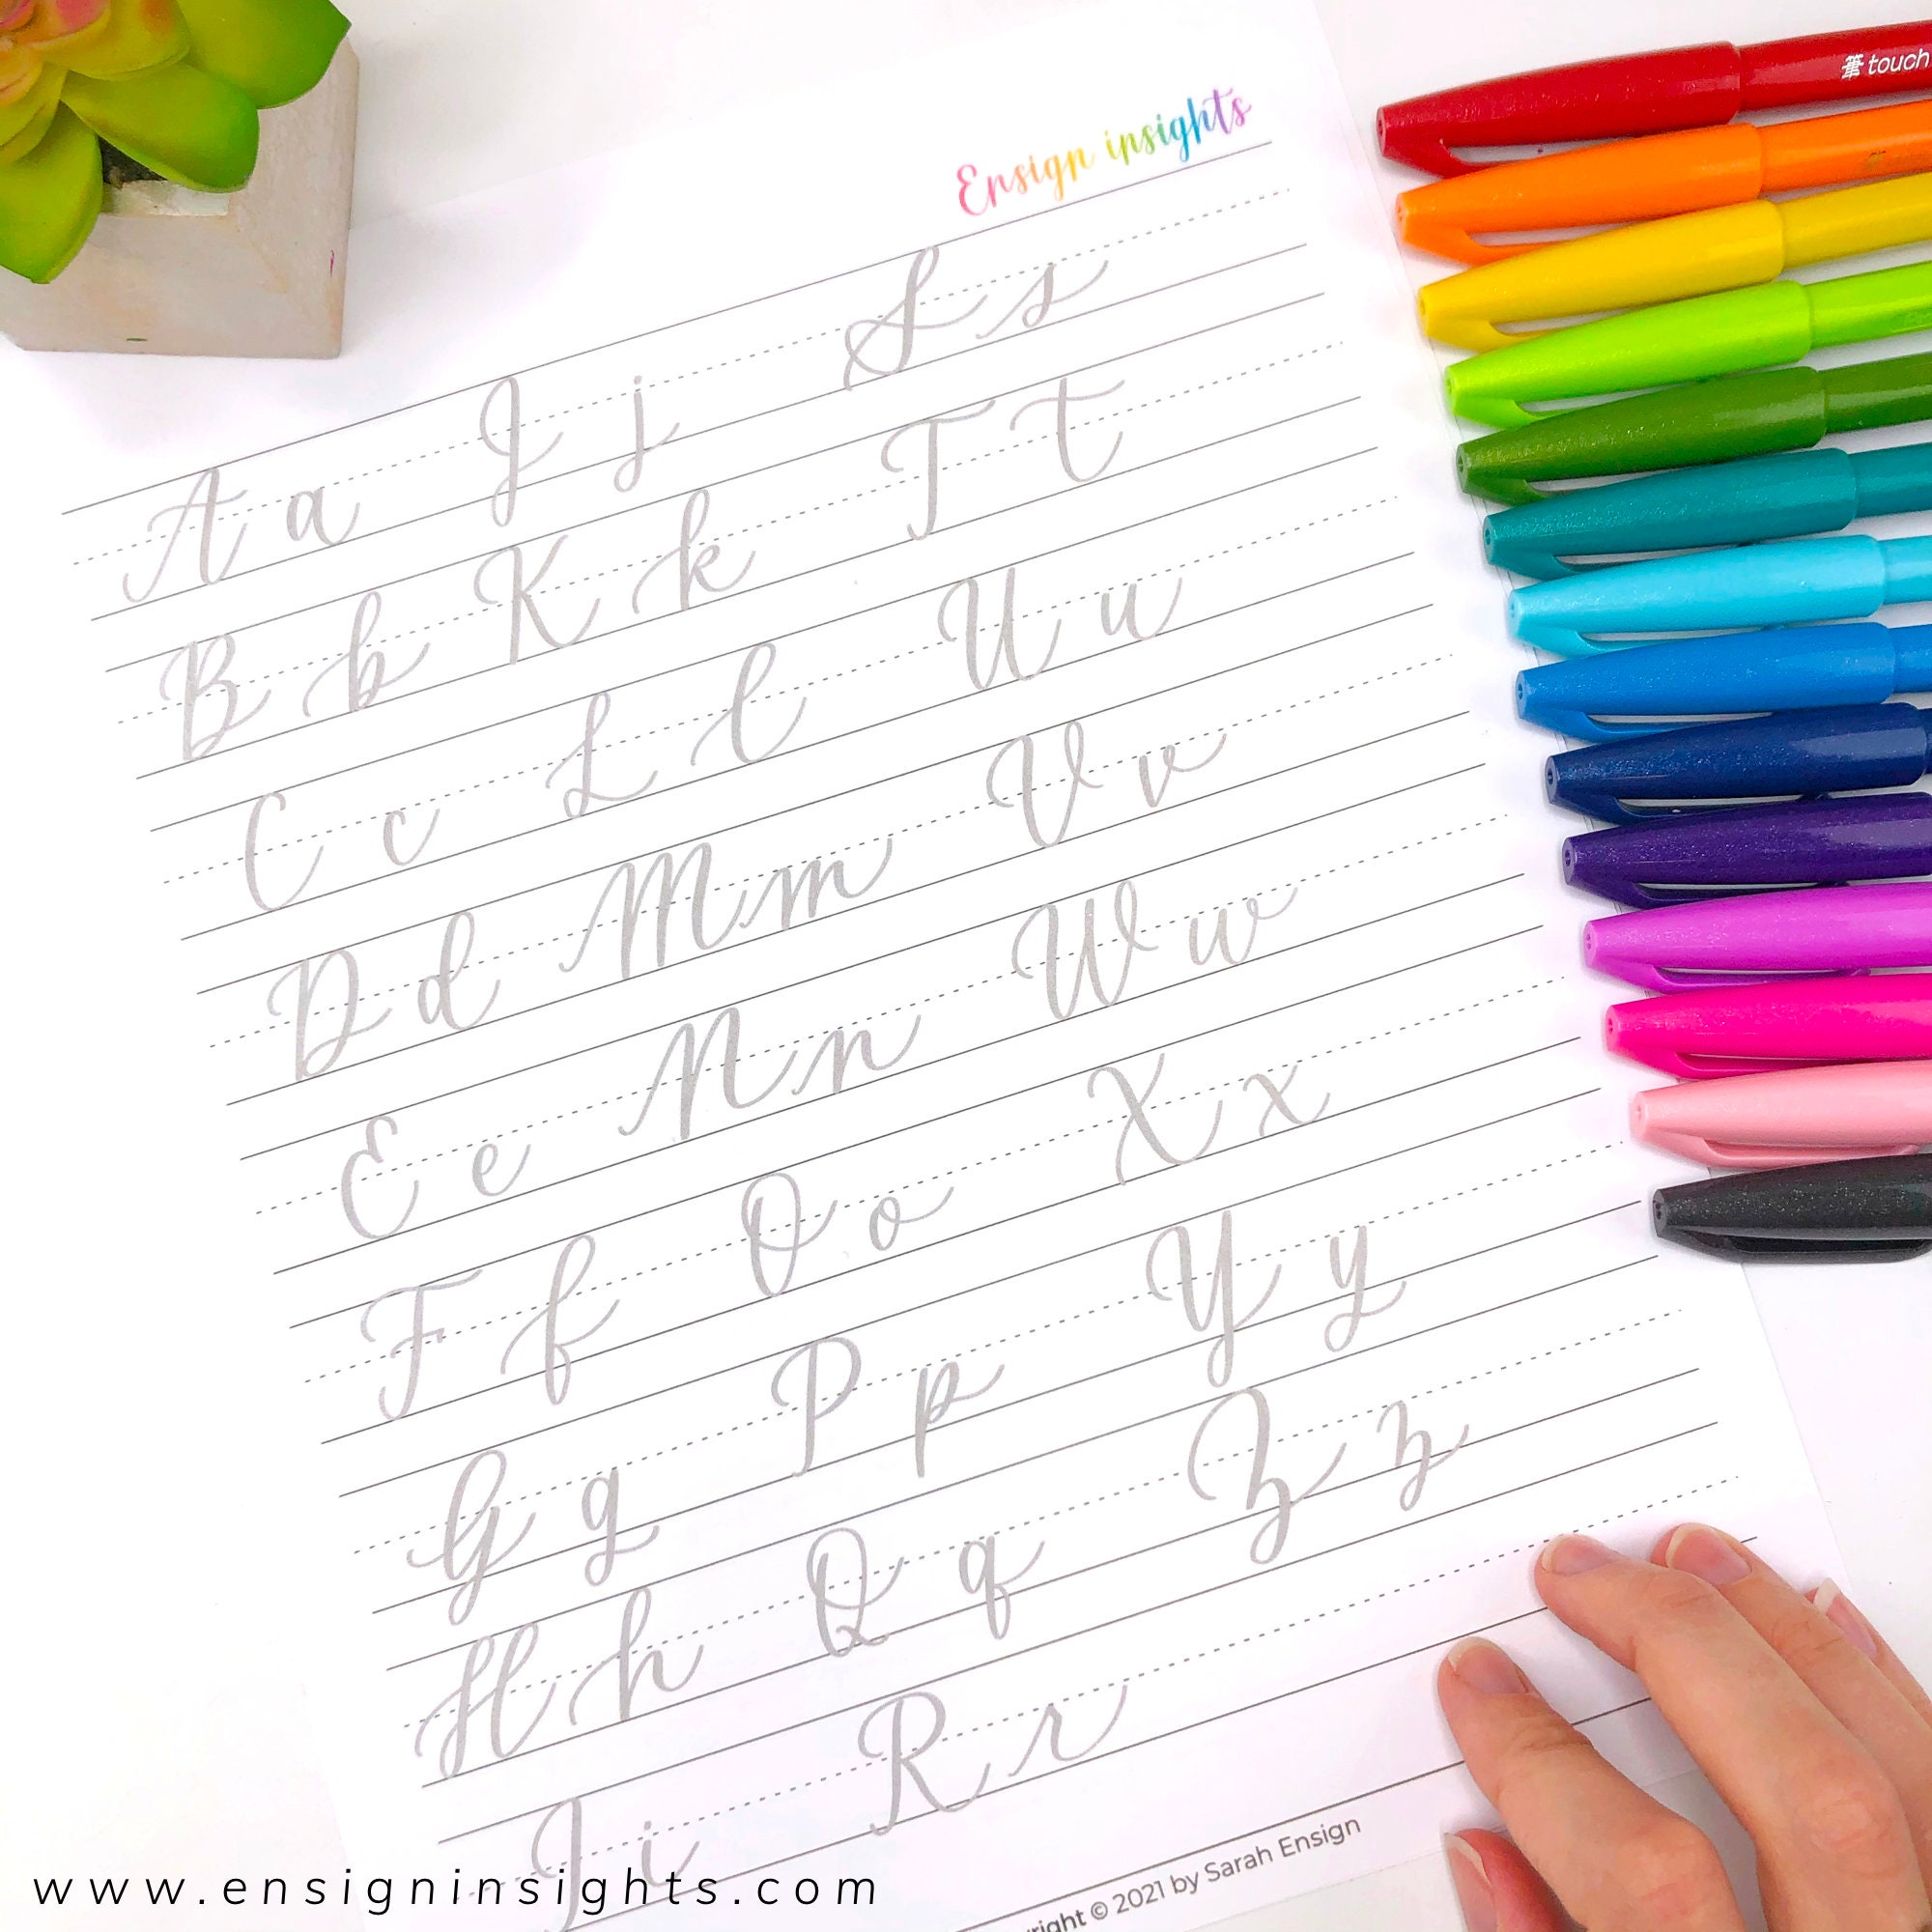 筆touch
Ensign insights
Aa Jj Ss
Bb Kk Tt
Cc Ll Uu
Dd Mm Vv
Ee Nn Ww
Ff Oo Xx
Gg Pp Yy
Hh Qq Zz
Ii Rr
© 2021 by Sarah Ensign
www.ensigninsights.com